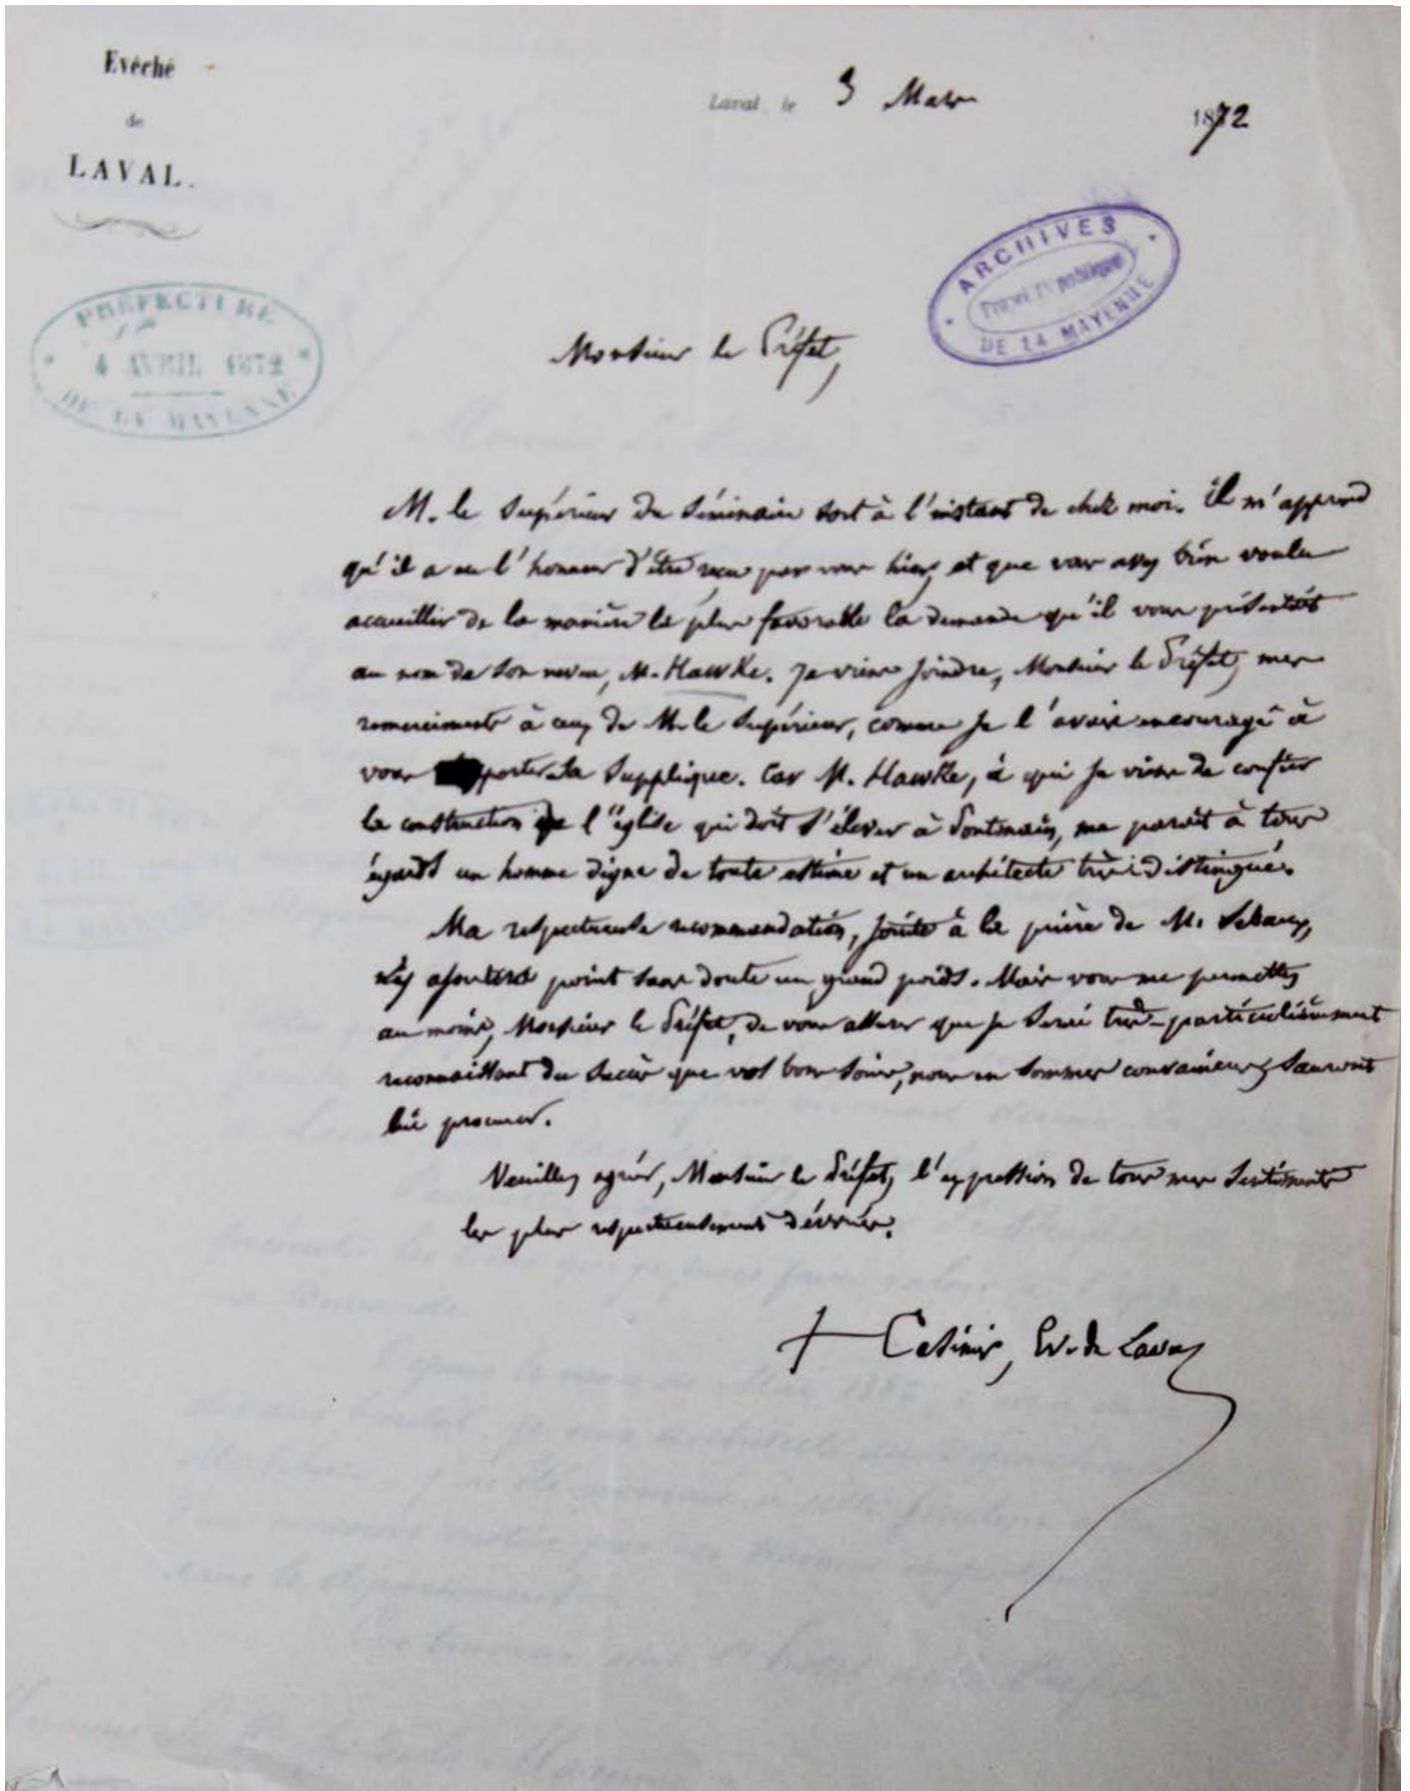 Evéché
de
LAVAL.
Laval, le 3 Mars 1872
ARCHIVES
DE LA MAYENNE
PRÉFECTURE
4 AVRIL 1872
DE LA MAYENNE
Monsieur le Préfet,
M. le Supérieur du Séminaire sort à l'instant de chez moi. Il m'apprend
qu'il a eu l'honneur d'être reçu par vous hier, et que vous avez bien voulu
accueillir de la manière la plus favorable la demande qu'il vous présentait
au nom de son neveu, M. Hawke. Je viens joindre, Monsieur le Préfet, mes
remerciments à ceux de M. le Supérieur, comme je l'avais encouragé à
vous porter sa supplique. Car M. Hawke, à qui je viens de confier
la construction de l'église qui doit s'élever à Pontmain, me paraît à tous
égards un homme digne de toute estime et un architecte très distingué.
Ma respectueuse recommandation, jointe à la prière de M. Sebaux,
n'y ajoutera point sans doute un grand poids. Mais vous me permettez
au moins, Monsieur le Préfet, de vous assurer que je serai très-particulièrement
reconnaissant du succès que vos bons soins, nous en sommes convaincus, sauront
lui procurer.
Veuillez agréer, Monsieur le Préfet, l'expression de tous mes sentiments
les plus respectueusement dévoués.
+ Casimir, Ev. de Laval